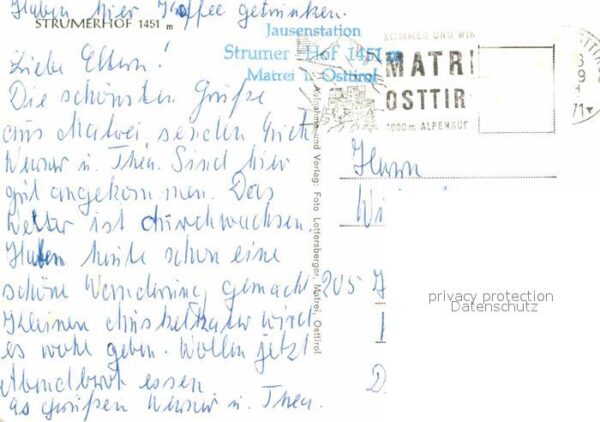 Haben hier Kaffee getrinken.
STRUMERHOF 1451 m
Jausenstation
Strumer - Hof 1451 m
Matrei i. Osttirol
SOMMER UND WIN
MATRI
OSTTIR
1000m ALPENSÜ
71
Liebe Eltern!
Die schönsten Grüße
aus Matrei senden Euch
Werner u. Thea. Sind hier
gut angekommen. Das
Wetter ist durchwachsen.
Haben heute schon eine
schöne Wanderung gemacht
Kleinen wird
es wohl geben. Wollen jetzt
Abendbrot essen
es grüßen Werner u. Thea.
Aufnahme und Verlag: Foto Lottersberger, Matrei, Osttirol
Herrn
Wi
205 7
D
privacy protection
Datenschutz